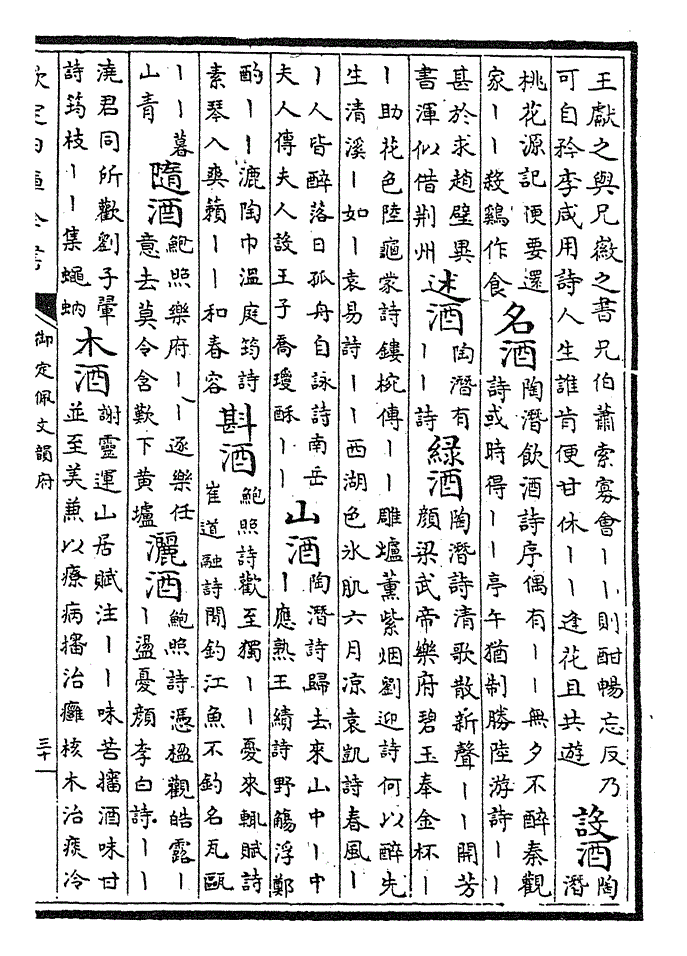 王獻之與兄徽之書兄伯蕭索寡會丨丨則酣暢忘反乃
可自矜李咸用詩人生誰肯便甘休丨丨逢花且共遊
設酒
陶
潛
桃花源記便要還
家丨丨殺雞作食
名酒
陶潛飲酒詩序偶有丨丨無夕不醉秦觀
詩或時得丨丨亭午猶制勝陸游詩丨丨
甚於求趙璧異
書渾似借荆州
述酒
陶潛有
丨丨詩
緑酒
陶潛詩清歌散新聲丨丨開芳
顔梁武帝樂府碧玉奉金杯丨
丨助花色陸龜蒙詩鏤椀傳丨丨雕爐薰紫烟劉迎詩何以醉先
生清溪丨如丨袁易詩丨丨西湖色氷肌六月凉袁凱詩春風丨
丨人皆醉落日孤舟自詠詩南岳
夫人傳夫人設王子喬瓊酥丨丨
山酒
陶潛詩歸去來山中丨中
丨應熟王績詩野觴浮鄭
酌丨丨漉陶巾溫庭筠詩
素琴入爽籟丨丨和春容
斟酒
鮑照詩歡至獨丨丨憂來輒賦詩
崔道融詩閒釣江魚不釣名瓦甌
丨丨暮
山青
隨酒
鮑照樂府丨丨逐樂任
意去莫令含歎下黄壚
灑酒
鮑照詩憑楹觀皓露丨
丨盪憂顔李白詩丨丨
澆君同所歡劉子翬
詩筠枝丨丨集蠅蚋
木酒
謝靈運山居賦注丨丨味苦播酒味甘
並至美兼以療病播治癰核木治痰冷
欽定四庫全書
御定佩文韻府
三十